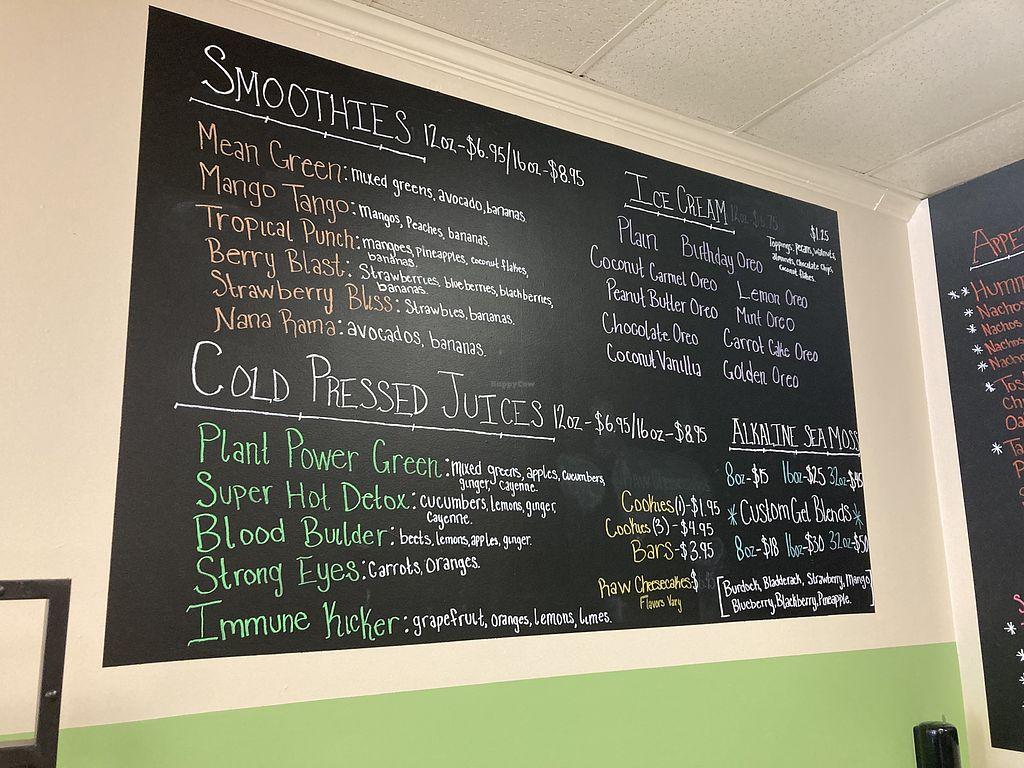 SMOOTHIES 12oz-$6.95/16oz-$8.95
Mean Green: mixed greens, avocado, bananas.
Mango Tango: Mangos, Peaches, bananas.
Tropical Punch: mangoes, pineapples, coconut flakes,
bananas.
Berry Blast: Strawberries, blueberries, blackberries,
bananas.
Strawberry Bliss: Strawbies, bananas.
Nana Rama: avocados, bananas.
COLD PRESSED JUICES 12oz-$6.95/16oz-$8.95
Plant Power Green: mixed greens, apples, cucumbers,
ginger, cayenne.
Super Hot Detox: cucumbers, lemons, ginger,
Cayenne.
Blood Builder: beets, lemons, apples, ginger.
Strong Eyes: Carrots, oranges.
Immune Kicker: grapefruit, oranges, lemons, limes.
ICE CREAM 12oz-$6.75
$1.25
Toppings: pecans, walnuts,
almonds, chocolate chips
coconut flakes.
Plain Birthday Oreo
Coconut Carmel Oreo Lemon Oreo
Peanut Butter Oreo Mint Oreo
Chocolate Oreo Carrot Cake Oreo
Coconut Vanillia Golden Oreo
Cookies (1)-$1.95
Cookies (3)-$4.95
Bars-$3.95
Raw Chesecakes:$
Flavors Vary
ALKALINE SEA MOSS
8oz-$15 16oz-$25 32oz-$45
*Custom Gel Blends*
8oz-$18 16oz-$30 32oz-$50
[Burdock, Bladderack, Strawberry, Mango
Blueberry, Blackberry, Pineapple.]
HappyCow